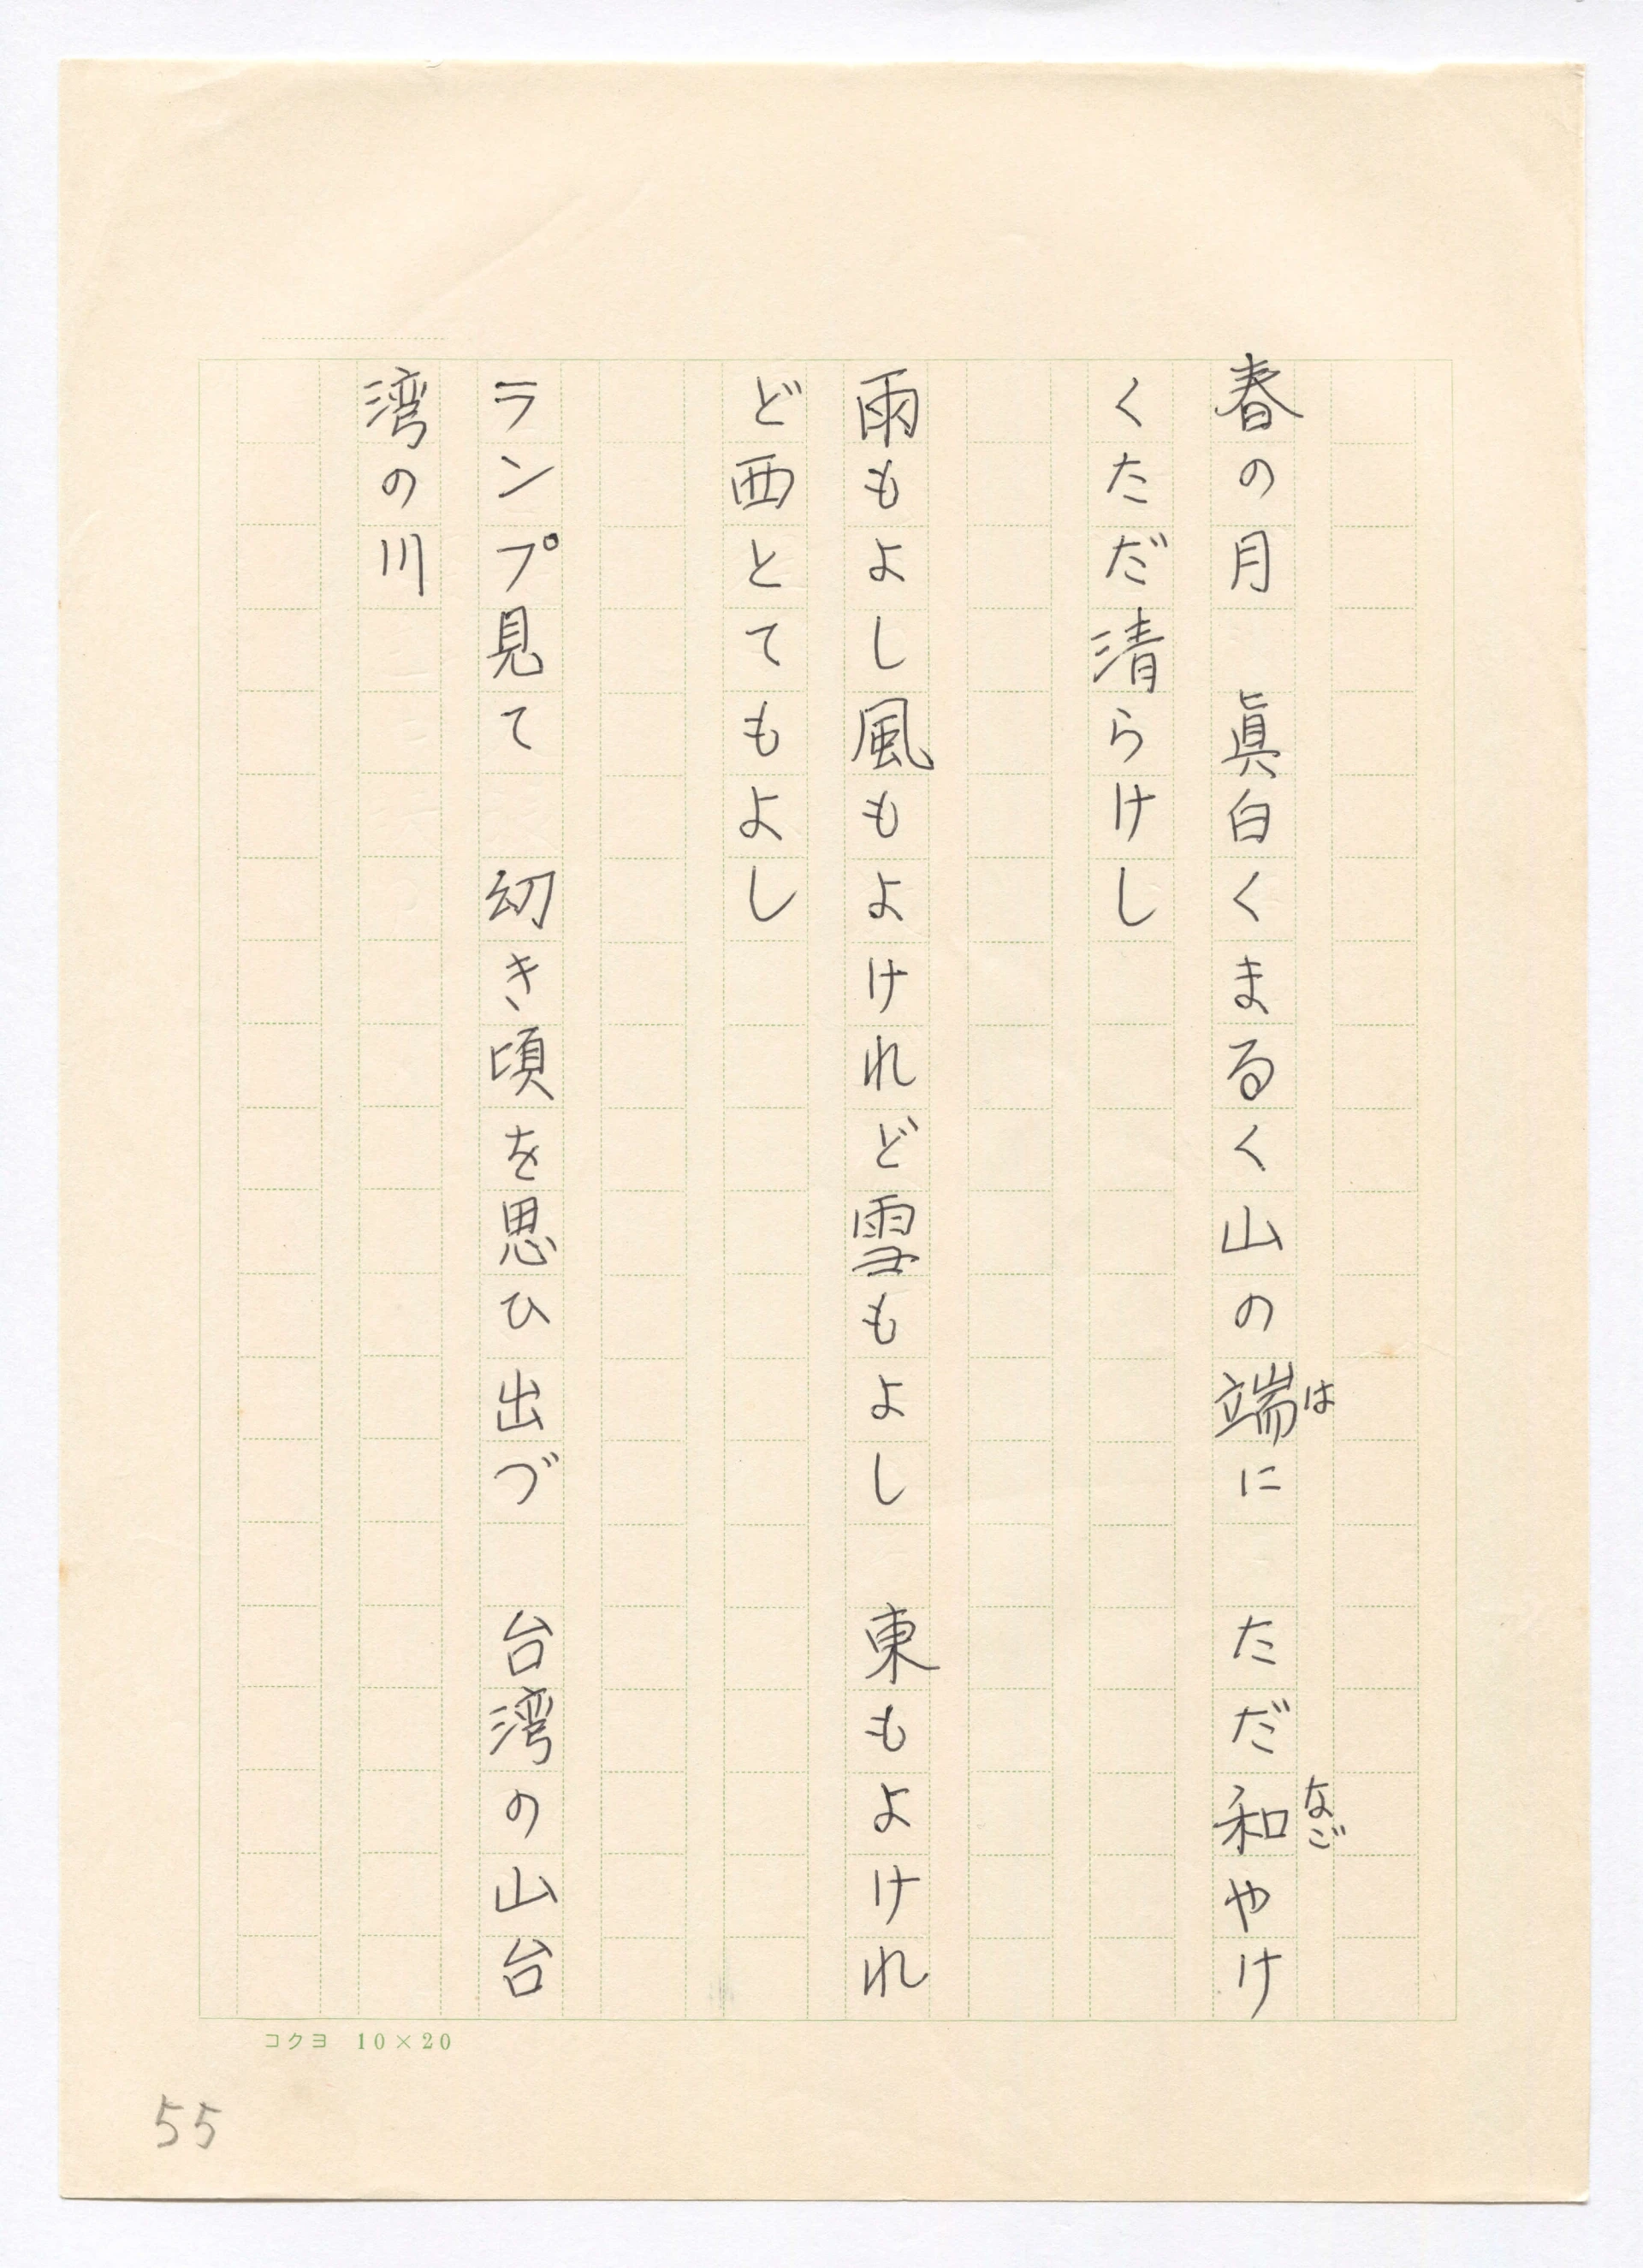 春の月　眞白くまるく山の端に　ただ和やけ
は
なご
くただ清らけし
雨もよし風もよけれど雪もよし　東もよけれ
ど西とてもよし
ランプ見て　幼き頃を思ひ出づ　台湾の山台
湾の川
コクヨ 10×20
55